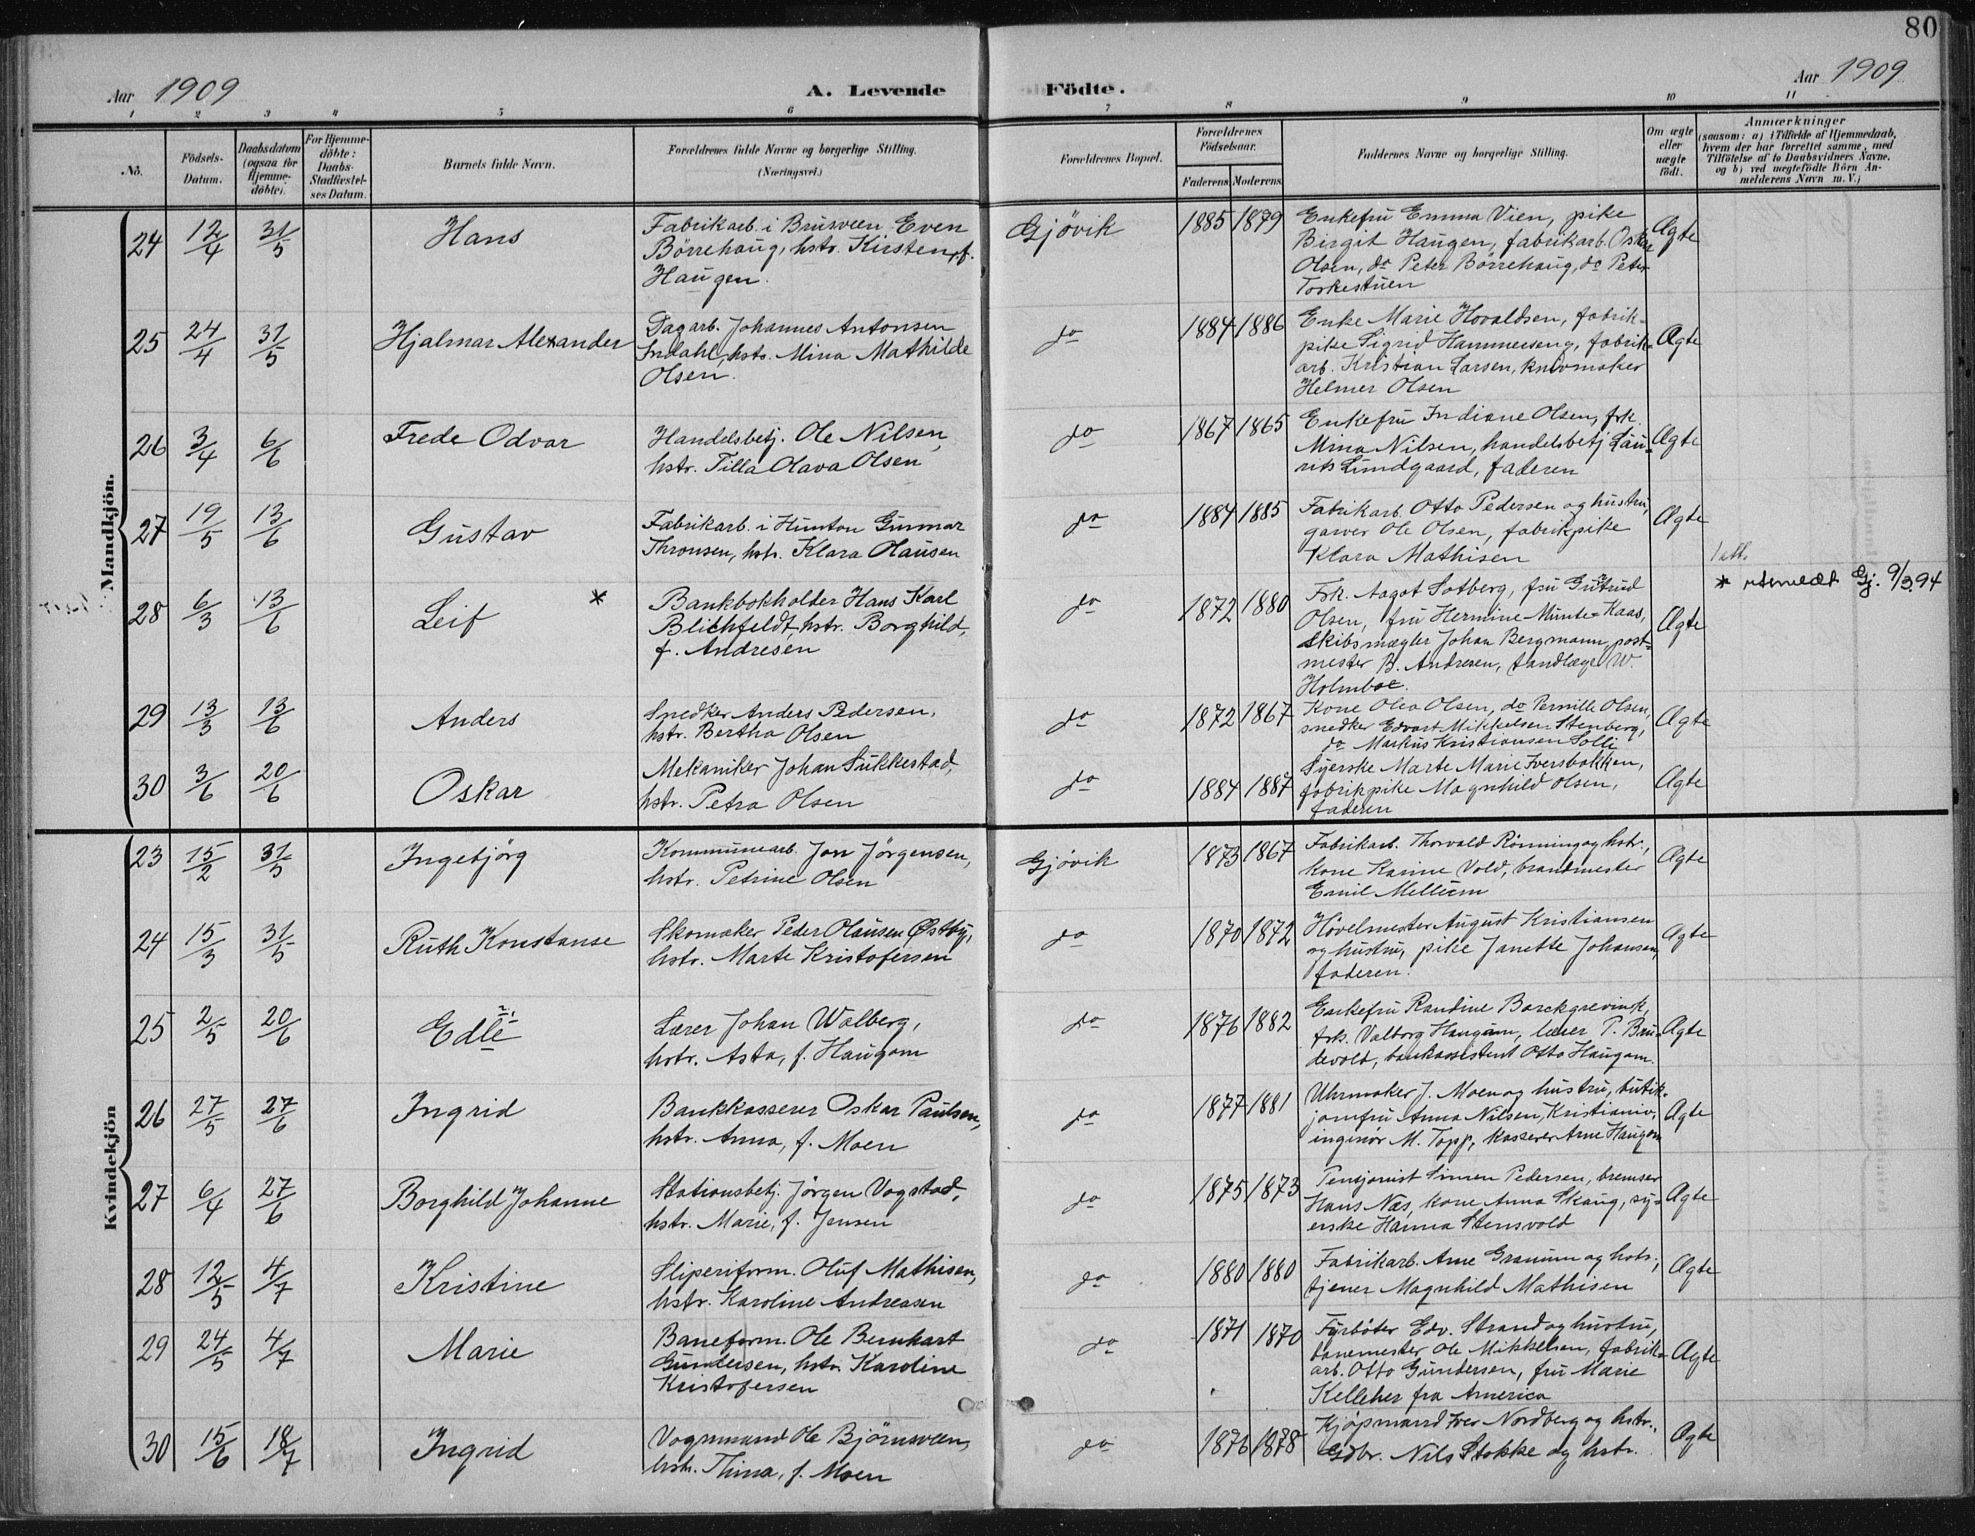 80
Aar 1909
A. Levende Födte.
Aar 1909
1 2 3 4 5 6 7 8 9 10 11
No. Födsels-Datum. Daabsdatum (ogsaa for Hjemme-döbte). For Hjemme-döbte: Daabs-Stadfæstel-ses Datum. Barnets fulde Navn. Forældrenes fulde Navne og borgerlige Stilling. (Næringsvei.) Forældrenes Bopæl. Forældrenes Födselsaar. Faderens Moderens Faddernes Navne og borgerlige Stilling. Om ægte eller uægte födt.
Anmærkninger
(saasom: a) i Tilfælde af Hjemmedaab,
hvem der har forrettet samme, med
Tilföielse af to Daabsvidners Navne,
og b) ved uægtefödte Börn An-
melderens Navn m. V.)
Mandkjön.
24 12/4 31/5 Hans
Fabrikarb. i Brusveen Even
Börrehaug, hstr. Kirsten, f.
Haugen.
Gjövik 1885 1879
Enkefru Emma Vien, pike
Birgit Haugen, fabrikarb. Oskar
Olsen, do Peter Börrehaug, do Peter
Torkestuen
Ægte
25 24/4 31/5 Hjalmar Alexander
Dagarb. Johannes Antonsen
Indahl, hstr. Mina Mathilde
Olsen.
do 1884 1886
Enke Marie Hovaldsen, fabrik-
pike Sigrid Hammerseng, fabrik-
arb. Kristian Larsen, knivmaker
Helmer Olsen
Ægte
26 3/4 6/6 Frede Odvar
Handelsbetj. Ole Nilsen,
hstr. Tilla Olava Olsen
do 1867 1865
Enkefru Indiane Olsen, frk.
Mina Nilsen, handelsbetj. Lau-
rits Lundgaard, faderen
Ægte
27 19/5 13/6 Gustav
Fabrikarb. i Hunton Gunnar
Thronsen, hstr. Klara Olausen
do 1884 1885
Fabrikarb. Otto Pedersen og hustru,
garver Ole Olsen, fabrikpike
Klara Mathisen
Ægte
28 6/3 13/6 Leif *
Bankbokholder Hans Karl
Blichfeldt, hstr. Borghild,
f. Andresen
do 1872 1880
Frk. Aagot Sotberg, fru Gutrud
Olsen, fru Hermine Munte-Kaas,
skibsmægler Johan Bergmann, post-
mester B. Andresen, tandlæge W.
Holmboe.
Ægte
* utmeldt Gj. 9/3.94
29 13/3 13/6 Anders
Snedker Anders Pedersen,
hstr. Bertha Olsen
do 1872 1867
Kone Olea Olsen, do Pernille Olsen,
snedker Edvart Mikkelsen Stenberg,
do Markus Kristiansen Solli
Ægte
30 3/6 20/6 Oskar
Mekaniker Johan Sukkestad,
hstr. Petra Olsen
do 1884 1887
Syerske Marte Marie Iversbakken,
fabrikpike Magnhild Olsen,
faderen
Ægte
Kvindekjön
23 15/2 31/5 Ingebjörg
Kommunearb. Jon Jörgensen,
hstr. Petrine Olsen
Gjövik 1873 1867
Fabrikarb. Thorvald Rönning og hstr.,
kone Karine Vold, brandmester
Emil Mellum
Ægte
24 15/3 31/5 Ruth Konstanse
Skomaker Peder Olausen Østby,
hstr. Marte Kristofersen
do 1870 1872
Hövelmester August Kristiansen
og hustru, pike Janette Johansen,
faderen.
Ægte
25 2/5 20/6 Edle
Lærer Johan Walberg,
hstr. Asta, f. Haugom
do 1876 1882
Enkefru Randine Borckgrevink,
frk. Valborg Haugom, lærer P. Bru-
devold, bankassistent Otto Haugom.
Ægte
26 27/5 27/6 Ingrid
Bankkasserer Oskar Paulsen,
hstr. Anna, f. Moen
do 1877 1881
Uhrmaker J. Moen og hustru, butik-
jomfru Anna Nilsen, Kristiania,
ingeniör M. Topp, kasserer Arne Haugom
Ægte
27 6/4 27/6 Borghild Johanne
Stationsbetj. Jörgen Vogstad,
hstr. Marie, f. Jensen
do 1875 1873
Pensjonist Simen Pedersen, bremser
Hans Næs, kone Anna Skaug, sy-
erske Hanna Stensvold
Ægte
28 12/5 4/7 Kristine
Sliperiform. Oluf Mathisen,
hstr. Karoline Andreasen
do 1880 1880
Fabrikarb. Arne Granum og hstr.,
tjener Magnhild Mathisen
Ægte
29 24/5 4/7 Marie
Baneform. Ole Bernhart
Gundersen, hstr. Karoline
Kristofersen
do 1871 1870
Fyrböter Edv. Strand og hustru,
banemester Ole Mikkelsen, fabrik-
arb. Otto Gundersen, fru Marie
Kelleher fra America
Ægte
30 15/6 18/7 Ingrid
Vognmand Ole Björnsveen,
hstr. Thina, f. Moen
do 1876 1878
Kjöpmand Iver Nordberg og hstr.,
Gdbr. Nils Stokke og hstr.
Ægte